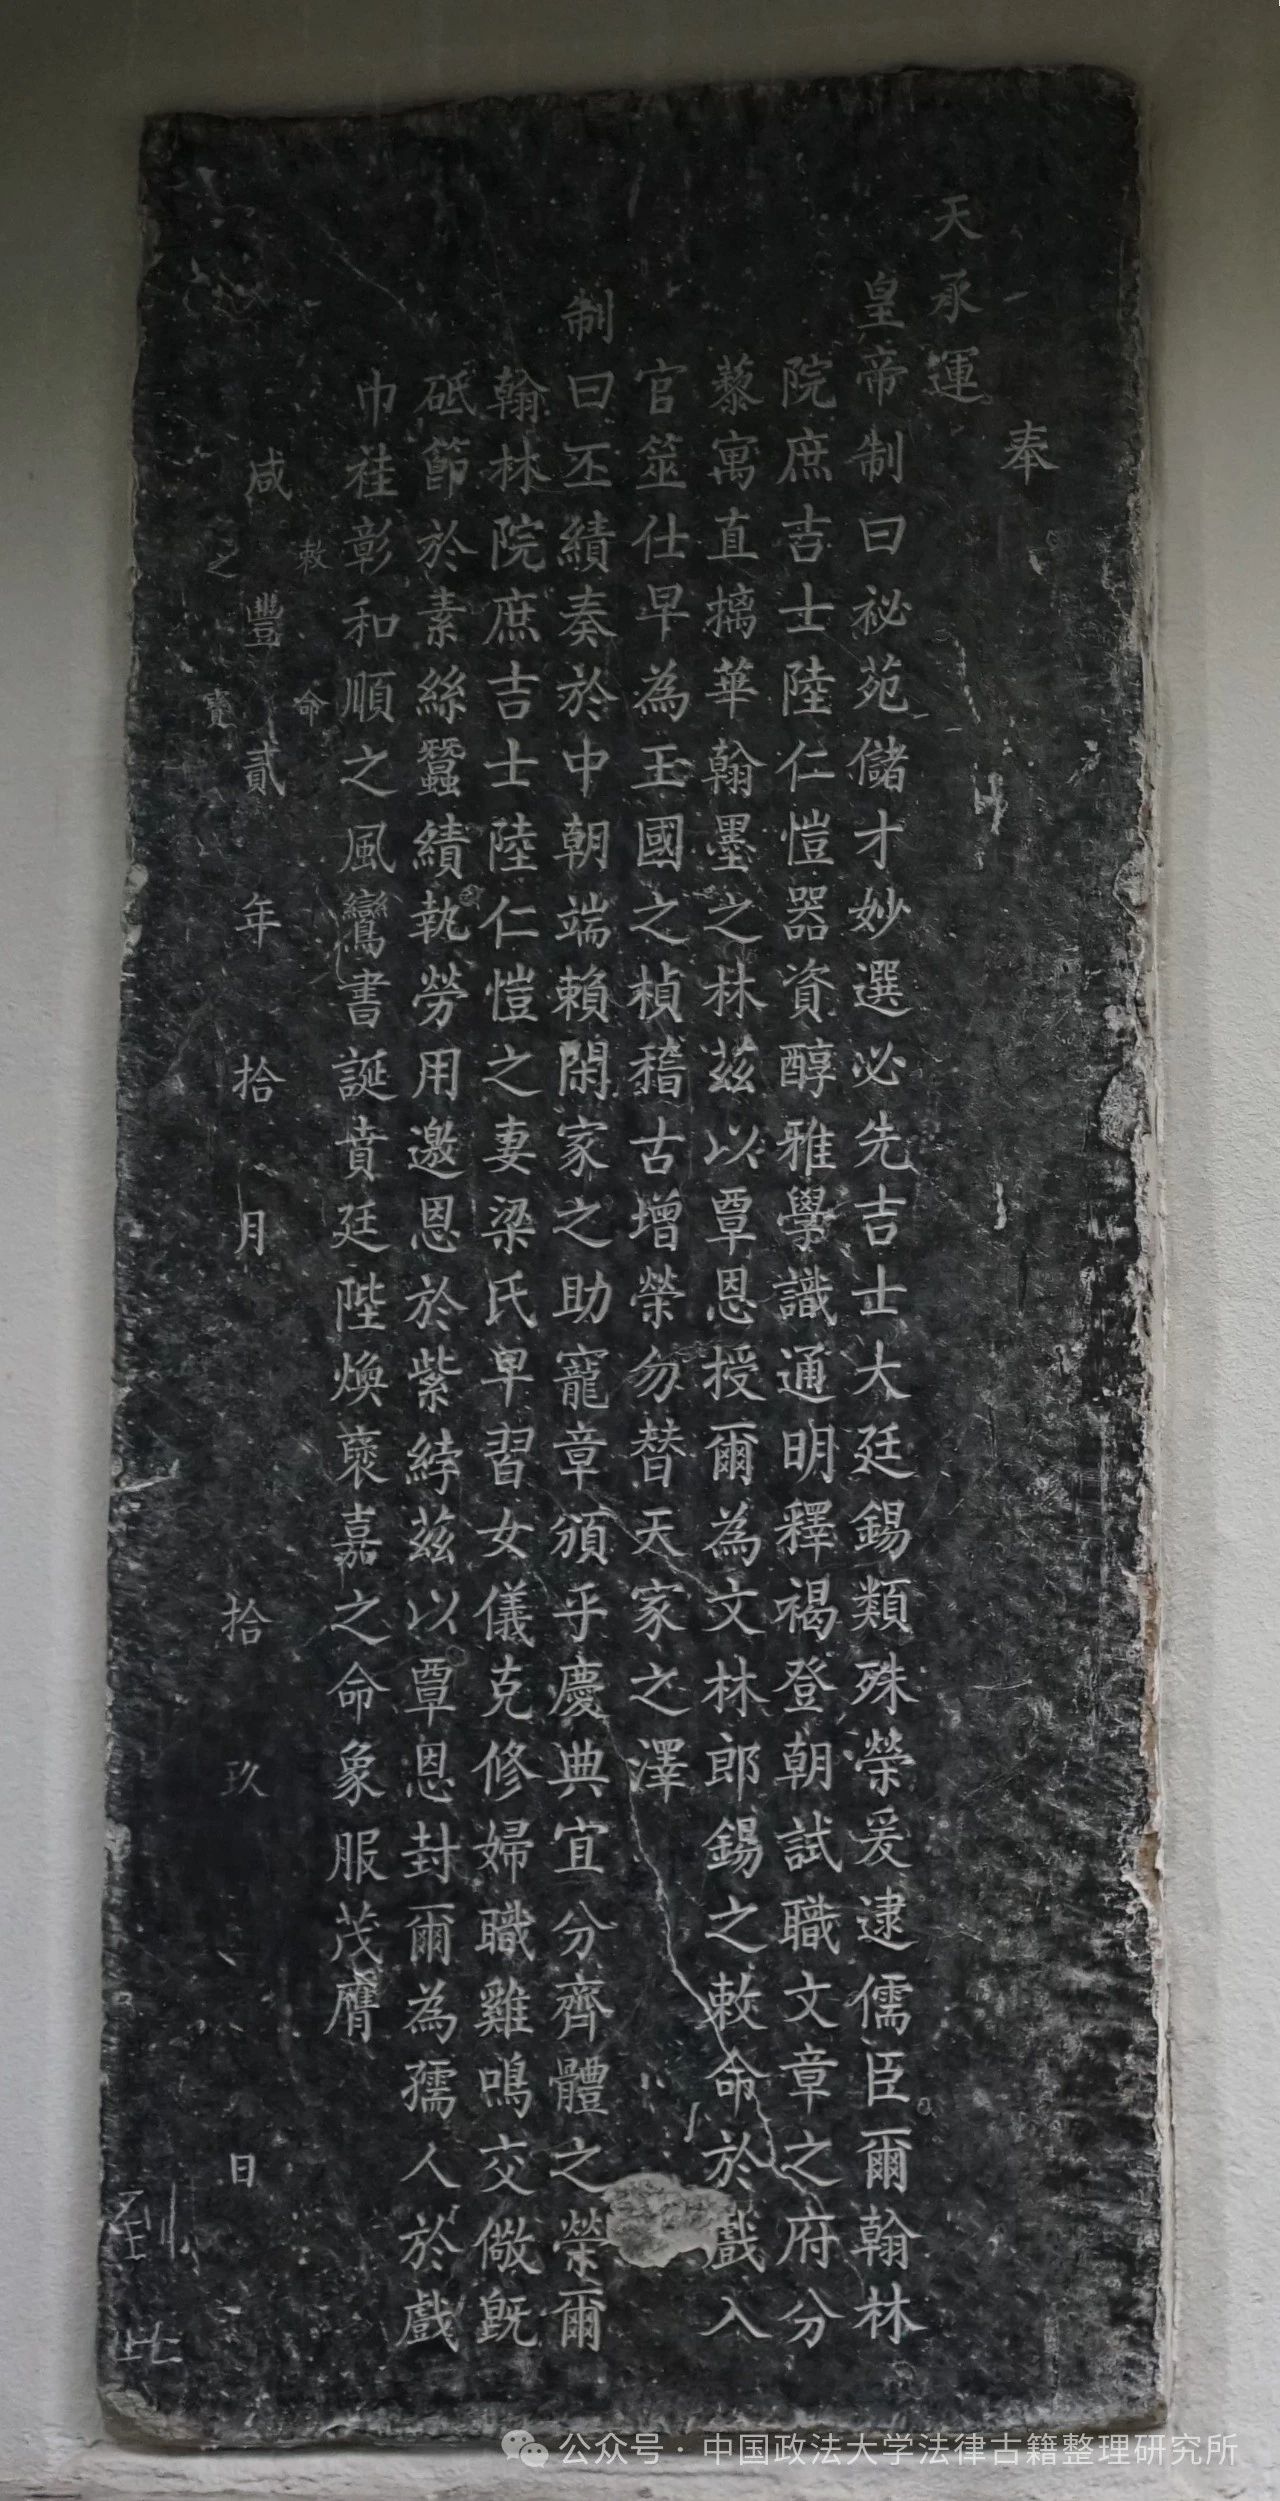 奉
天承運
皇帝制曰祕苑儲才妙選必先吉士大廷錫類殊榮爰逮儒臣爾翰林
院庶吉士陸仁愷器資醇雅學識通明釋褐登朝試職文章之府分
藜寓直摛華翰墨之林茲以覃恩授爾為文林郎錫之敕命於戲入
官筮仕早為王國之楨稽古增榮勿替天家之澤
制曰丕績奏於中朝端賴閑家之助寵章頒乎慶典宜分齊體之榮爾
翰林院庶吉士陸仁愷之妻梁氏早習女儀克修婦職雞鳴交儆既
砥節於素絲蠶績執勞用邀恩於紫綍茲以覃恩封爾為孺人於戲
巾袿彰和順之風鸞書誕賁廷陛煥襃嘉之命象服茂膺
敕命
咸豐貳年拾月拾玖日
之寶
到此
公众号·中国政法大学法律古籍整理研究所